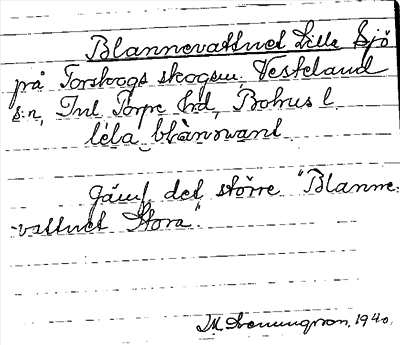 Blannevattnet Lilla Sjö
på Torskogs skogen. Västerland
s:n, Inl Torpe hd, Bohus l.
lela blannvant.
Jämf det större "Blanne-
-vattnet Stora".
1940.